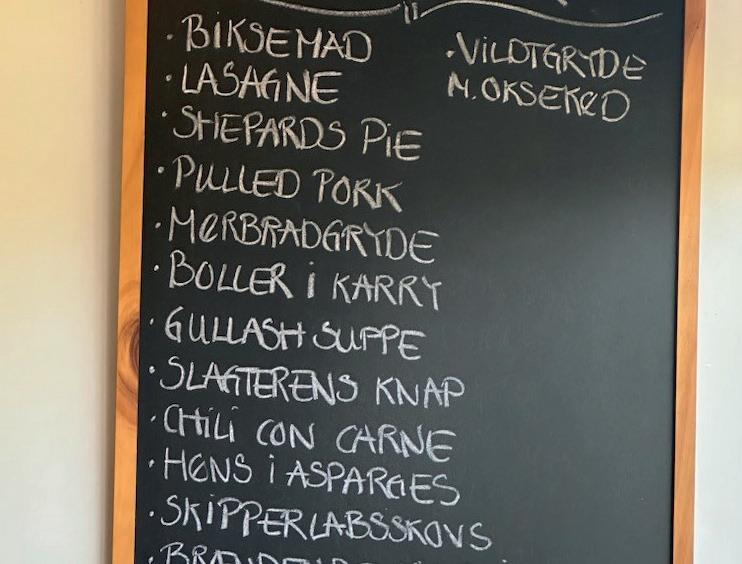 · BIKSEMAD
· LASAGNE
· SHEPARDS PIE
· PULLED PORK
· MØRBRADGRYDE
· BOLLER I KARRY
· GULLASH SUPPE
· SLAGTERENS KNAP
· CHILI CON CARNE
· HØNS I ASPARGES
· SKIPPERLABSSKOVS
· VILDTGRYDE
M. OKSEKØD